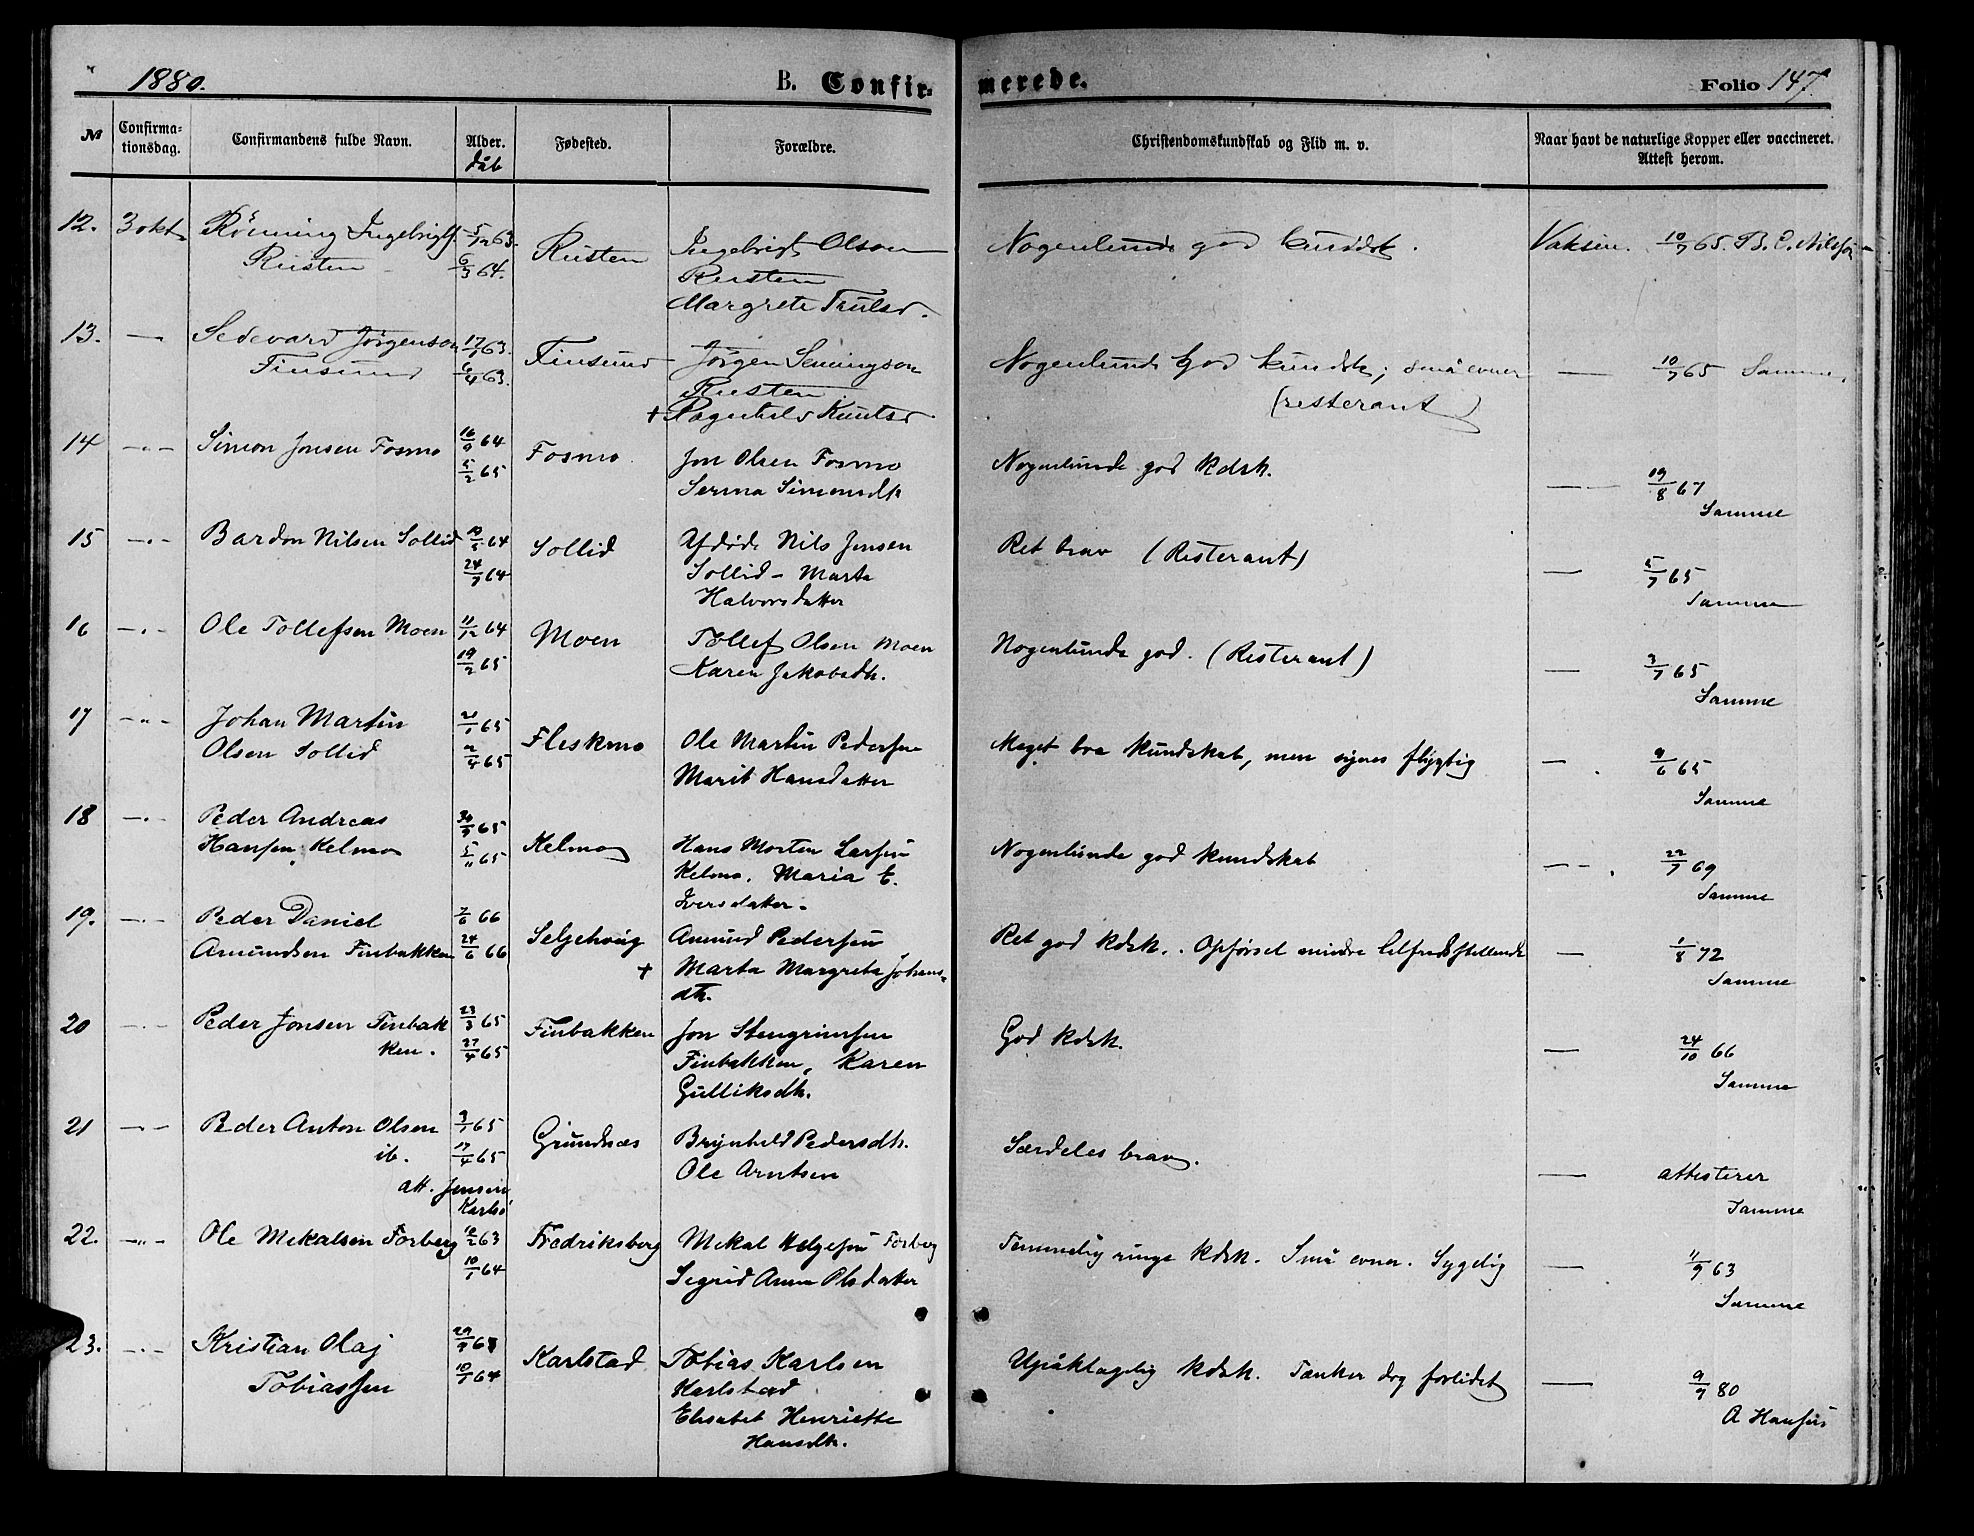 1880.
B. Confir-
merede.
Folio 147
№
Confirma-
tionsdag.
Confirmandens fulde Navn.
Alder.
dåb
Fødested.
Forældre.
Christendomskundskab og Flid m. v.
Naar havt de naturlige Kopper eller vaccineret.
Attest herom.
12. 3 okt. Rönning Ingebrigts. 5/12 63. Rusten Ingebrigt Olson Nogenlunde god kundsk. Vaksin. 10/7 65. B. C. Nilssøn
Rusten 6/3 64. Rusten
Margrete Trulsd.
13. — Sedevard Jørgenson 17/1 63. Finsund Jørgen Semingson Nogenlunde god kundsk; små evner — 10/7 65 Samme.
Finsund 6/4 63. Rusten (resterant)
+ Ragnhild Knutsd
14 —"— Simon Jonsen Fosmo 16/9 64 Fosmo Jon Olsen Fosmo Nogenlunde god kdsk. — 19/8 67
5/2 65 Serina Simonsdtr Samme
15 —"— Bardon Nilsen Sollid 10/5 64 Sollid Afdøde Nils Jensen Ret brav (Resterant) — 5/7 65
24/7 64 Sollid - Marta Samme
Halvorsdatter
16 —"— Ole Tollefsen Moen 11/12 64 Moen Tollef Olsen Moen Nogenlunde god. (Resterant) — 3/7 65
19/2 65 Karen Jakobsdtr. Samme
17 —"— Johan Martin 21/1 65 Fleskmo Ole Martin Pedersen Meget bra kundskab, men synes flygtig — 9/6 65
Olsen Sollid 2/4 65 Marit Hansdatter Samme
18 —"— Peder Andreas 30/9 65 Kelmo Hans Morten Larsen Nogenlunde god kundskab — 22/7 69
Hansen, Kelmo 5/11 65 Kelmo. Maria E. Samme
Iversdatter.
19. —"— Peder Daniel 7/6 66 Seljehaug Amund Pedersen Ret god kdsk. Opførsel mindre tilfredsstillende — 1/8 72
Amundsen Finbakken 24/6 66 + Marta Margreta Johans- Samme
dtr.
20 —"— Peder Jonsen Finbak 23/3 65 Finbakken Jon Stengrimsen God kdsk. — 24/10 66
ken. 27/4 65 Finbakken, Karen Samme
Gulliksdtr.
21 —"— Peder Anton Olsen 9/1 65 Grundnæs Brynhild Pedersdtr. Særdeles brav. — attesterer
ib. 17/4 65 Ole Arntsen Samme
att. Jensen
Karlsö
22. —"— Ole Mekalsen Forberg 12/2 63 Fredriksberg Mekal Helgesen Forberg Temmelig ringe kdsk. Små evner. Sygelig — 11/9 63
10/1 64 Sigrid Anna Olsdatter Samme
23. —"— Kristian Olaj 29/9 63 Karlstad Tobias Karlsen Upåklagelig kdsk. Tænker dog forlidet — 9/9 80
Tobiassen 10/1 64 Karlstad A Hansen
Elisabet Henriette
Hansdtr.